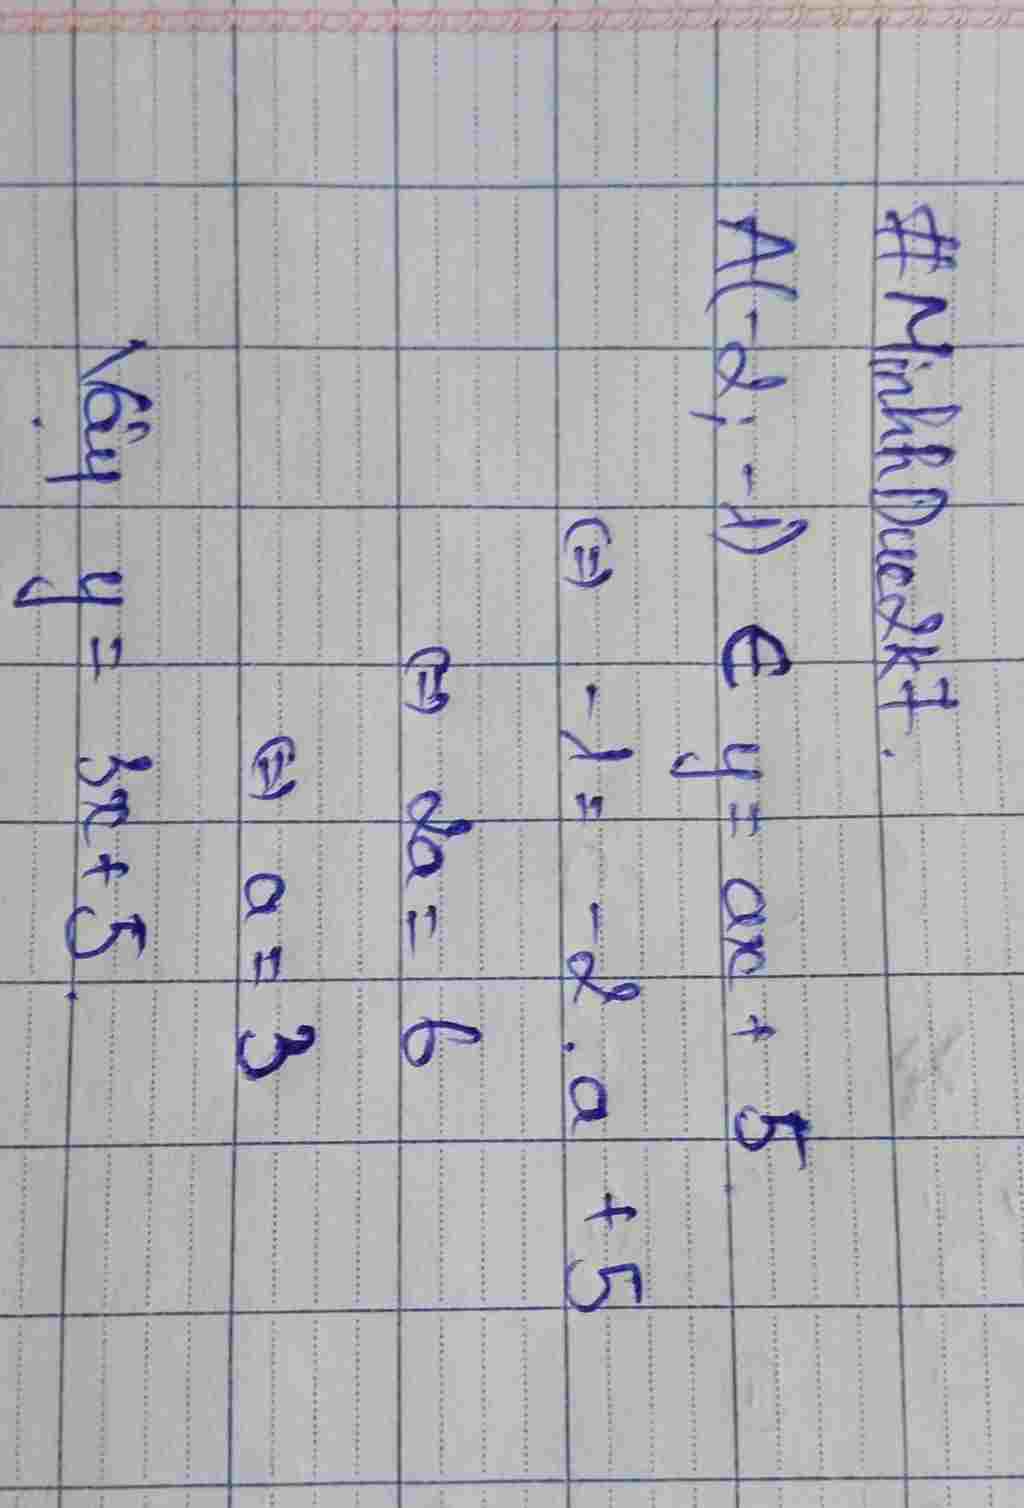 #MinhDuc2k7.
A(-2; -1) ∈ y = ax + 5
(=) -1 = -2.a + 5
(=) 2a = 6
(=) a = 3
Vậy y = 3x + 5.